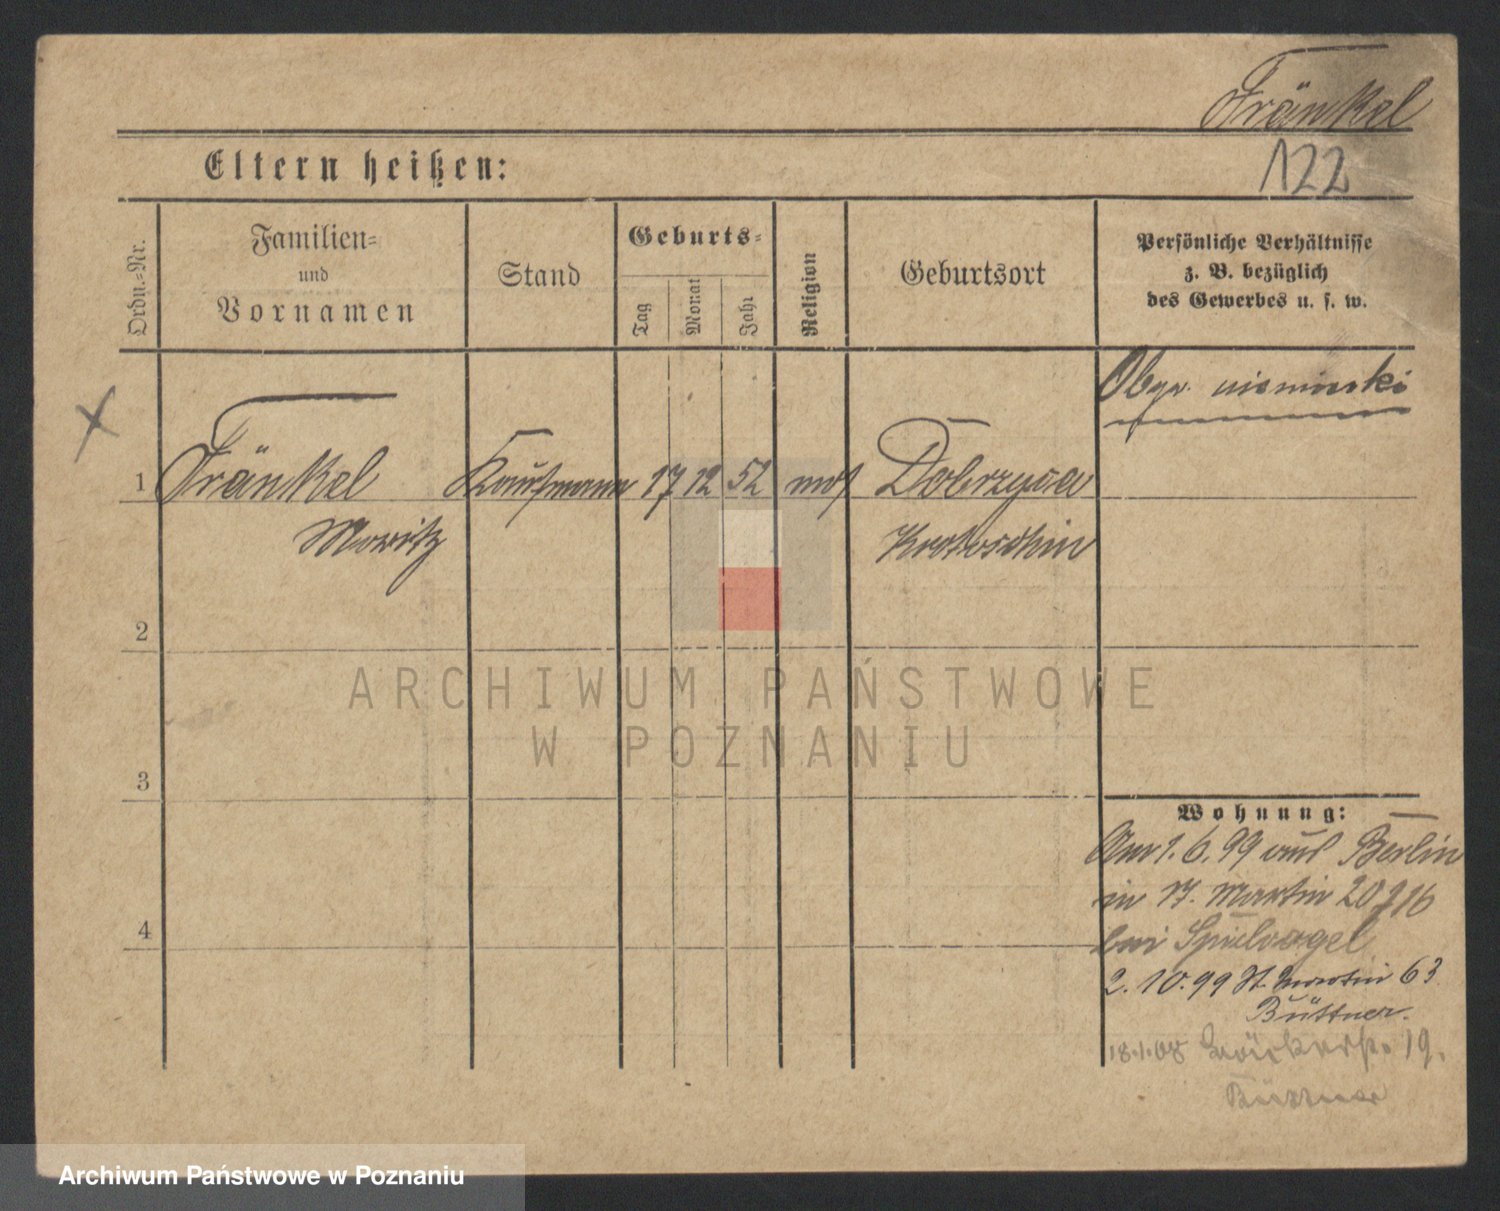 Fränkel
Eltern heißen:
122
Ordn.-Nr.
Familien-
und
Vornamen
Stand
Geburts-
Tag
Monat
Jahr
Religion
Geburtsort
Persönliche Verhältnisse
z. B. bezüglich
des Gewerbes u. s. w.
X
1 Fränkel Kaufmann 17 12 52 mos Dobrzyca
Moritz Krotoschin
2
ARCHIWUM PAŃSTWOWE
W POZNANIU
3
Wohnung:
Am 1. 6. 99 aus Berlin
in Martin 20
4
bei Spielvogel
2. 10. 99 St. Martin 63
Büttner.
18.1.08 19.
Büttner
Archiwum Państwowe w Poznaniu